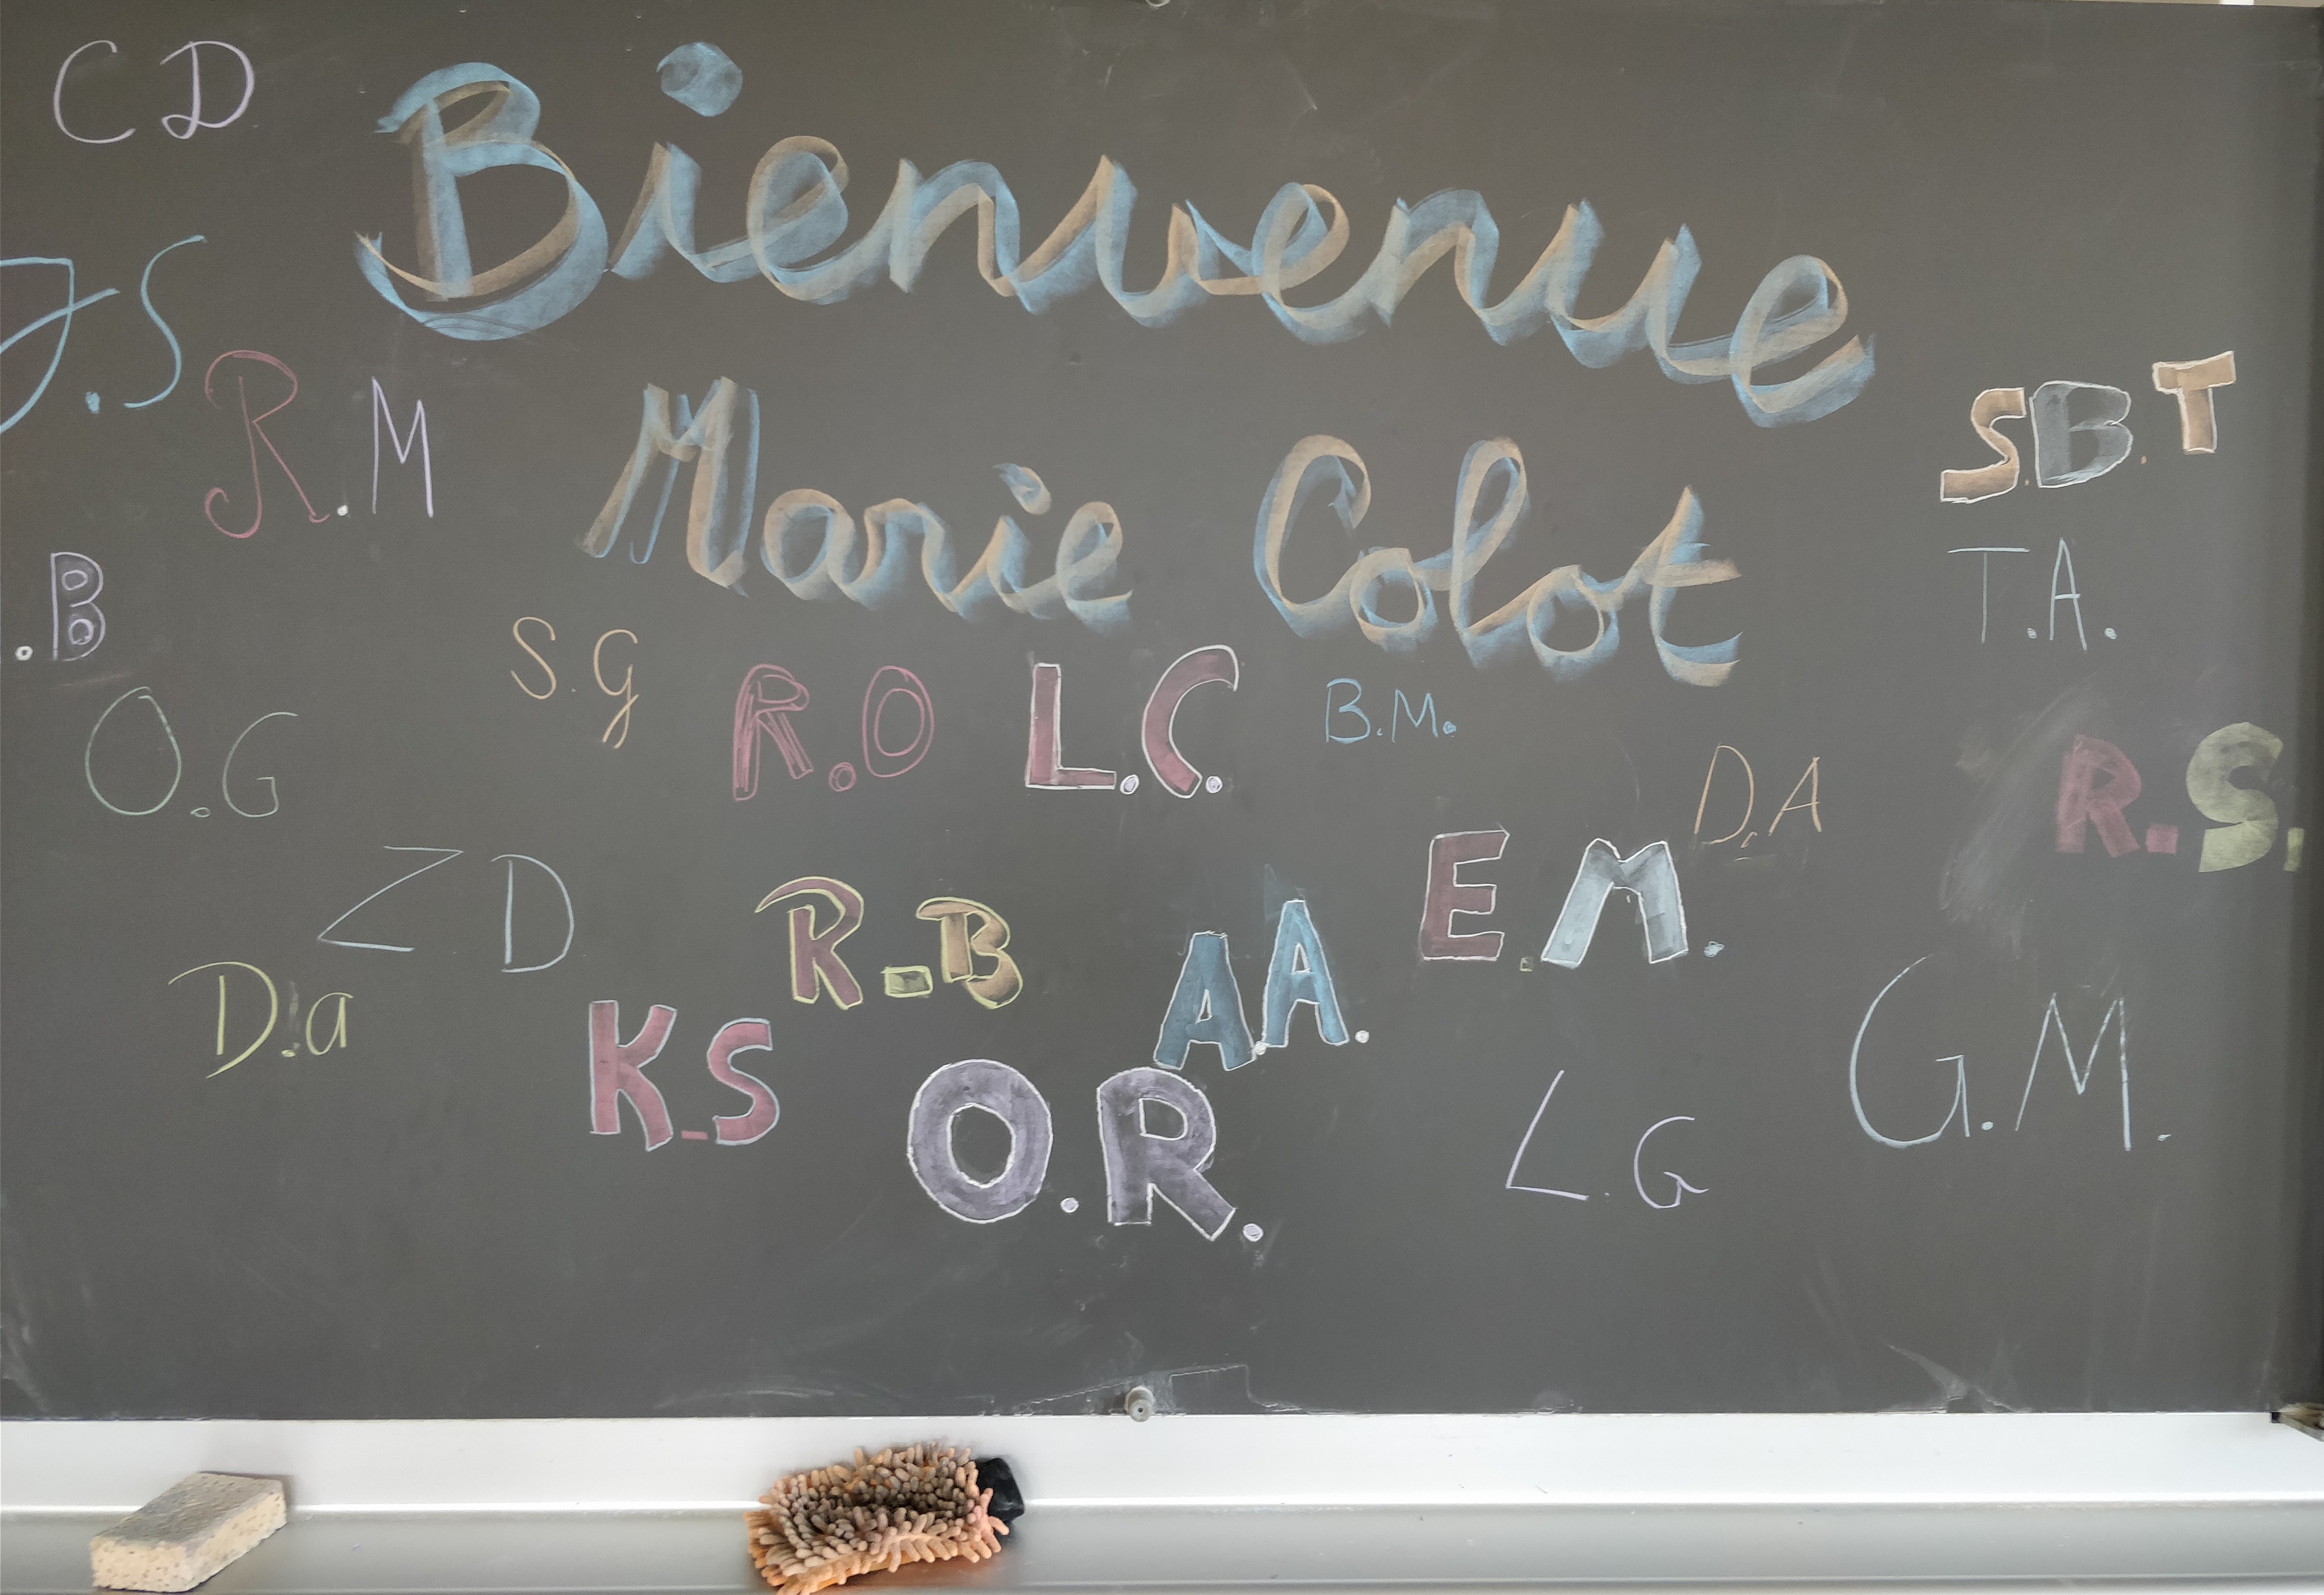 C D
Bienvenue
J.S
R.M
Marie Colot
S.B.T
T.A.
.B
S.G
R.O
L.C.
B.M.
O.G
D.A
R.S.
Z D
R.B
A.A.
E.M.
D.a
K.S
O.R.
L.G
G.M.